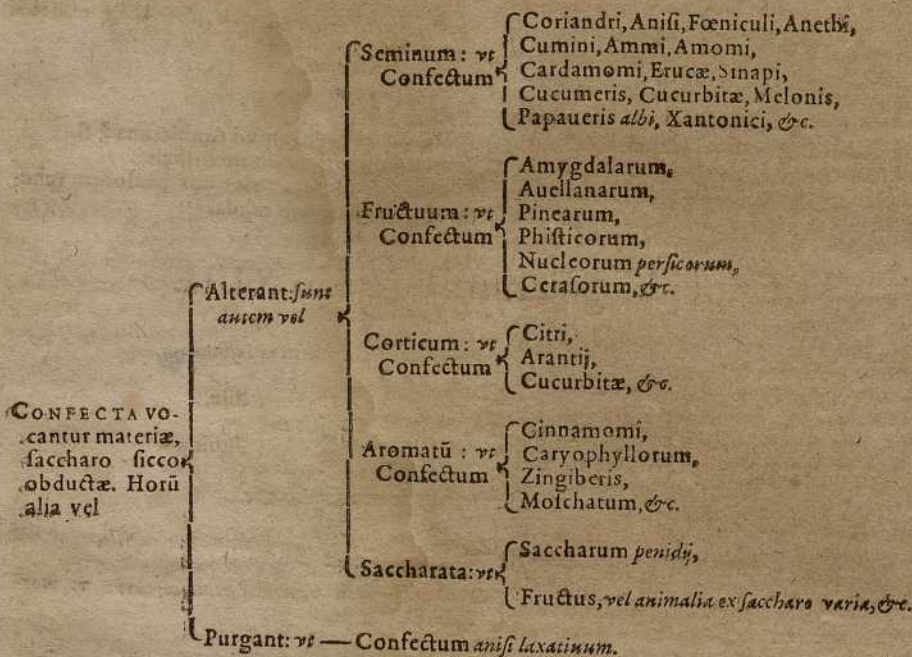 CONFECTA VO-
cantur materiæ,
ſaccharo ſicco
obductæ. Horū
alia vel
Alterant: ſunt
autem vel
Seminum: vt
Confectum
Coriandri, Aniſi, Fœniculi, Anethi,
Cumini, Ammi, Amomi,
Cardamomi, Erucæ, Sinapi,
Cucumeris, Cucurbitæ, Melonis,
Papaueris albi, Xantonici, &c.
Fructuum: vt
Confectum
Amygdalarum,
Auellanarum,
Pinearum,
Phiſticorum,
Nucleorum perſicorum,
Ceraſorum, &c.
Corticum: vt
Confectum
Citri,
Arantij,
Cucurbitæ, &c.
Aromatū: vt
Confectum
Cinnamomi,
Caryophyllorum,
Zingiberis,
Moſchatum, &c.
Saccharata: vt
Saccharum penidij,
Fructus, vel animalia ex ſaccharo varia, &c.
Purgant: vt — Confectum aniſi laxatiuum.